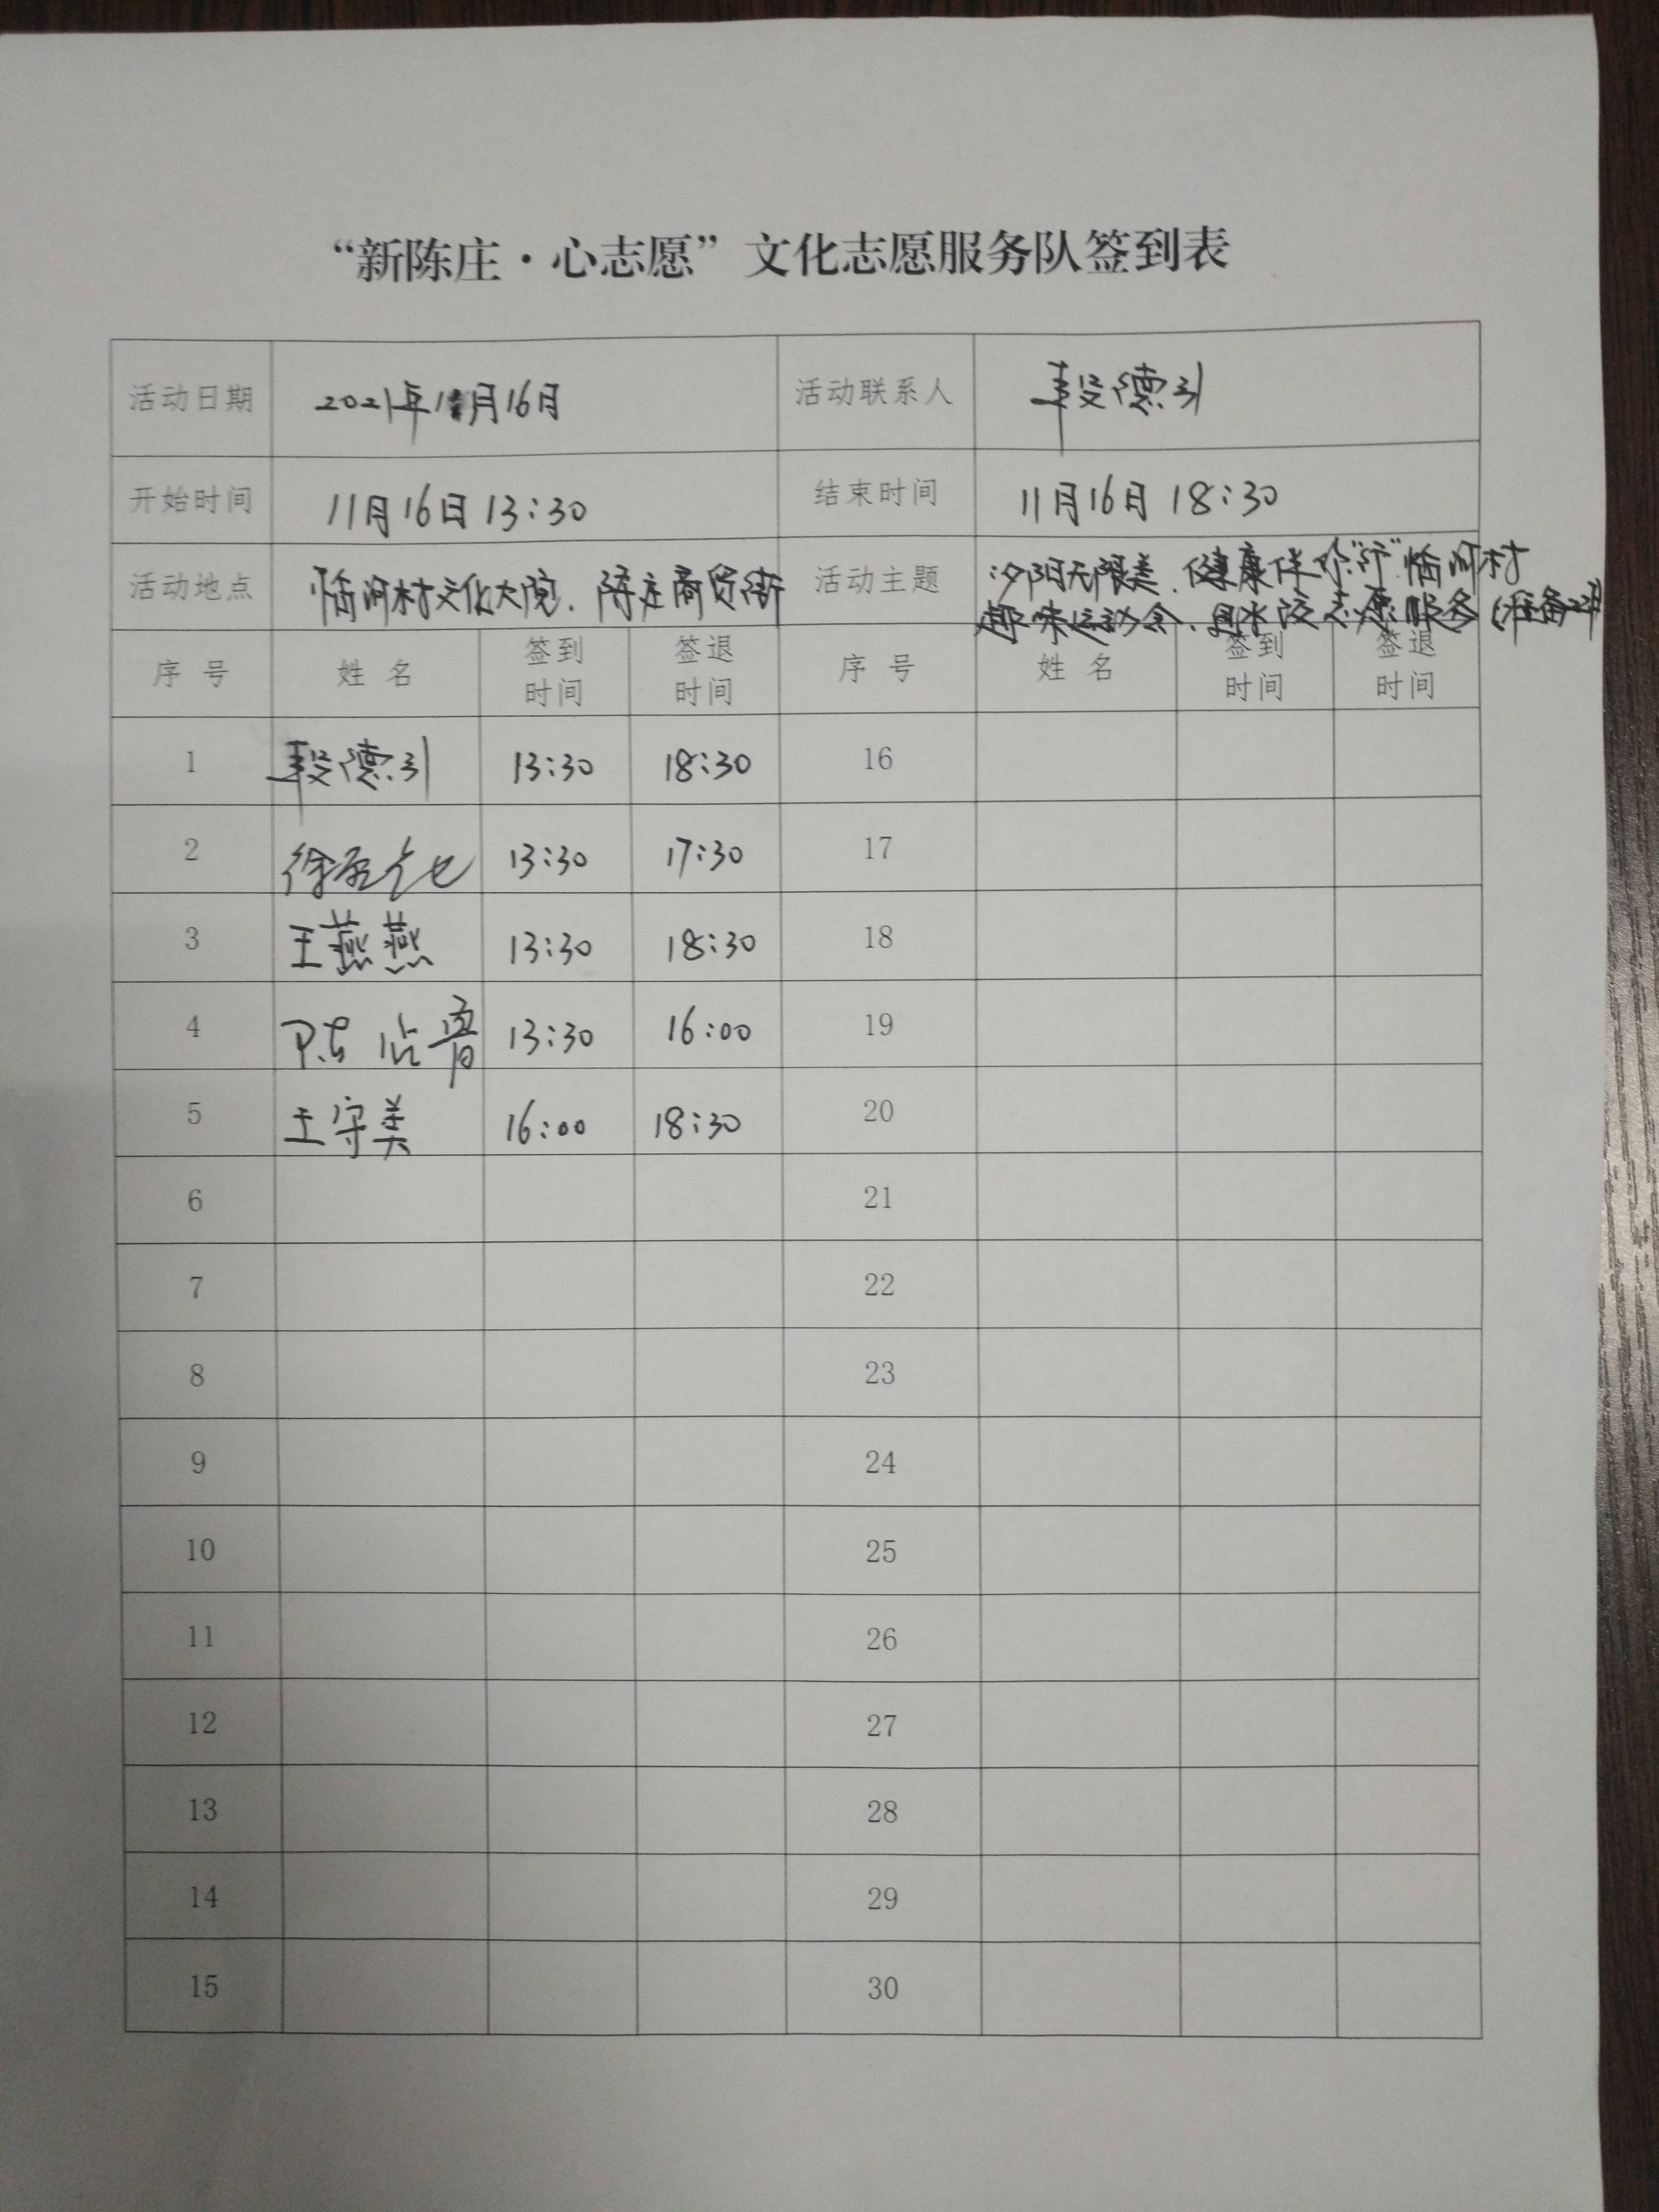 “新陈庄·心志愿”文化志愿服务队签到表
活动日期 2021年11月16日 活动联系人 段德引
开始时间 11月16日13:30 结束时间 11月16日 18:30
活动地点 临河村文化大院、陈庄商贸街 活动主题 夕阳无限美、健康伴你“行”临河村
趣味运动会、 志愿服务(准备
序 号 姓 名 签到时间 签退时间 序 号 姓 名 签到时间 签退时间
1 段德引 13:30 18:30 16
2 徐 13:30 17:30 17
3 王燕燕 13:30 18:30 18
4 陈 13:30 16:00 19
5 王守美 16:00 18:30 20
6 21
7 22
8 23
9 24
10 25
11 26
12 27
13 28
14 29
15 30